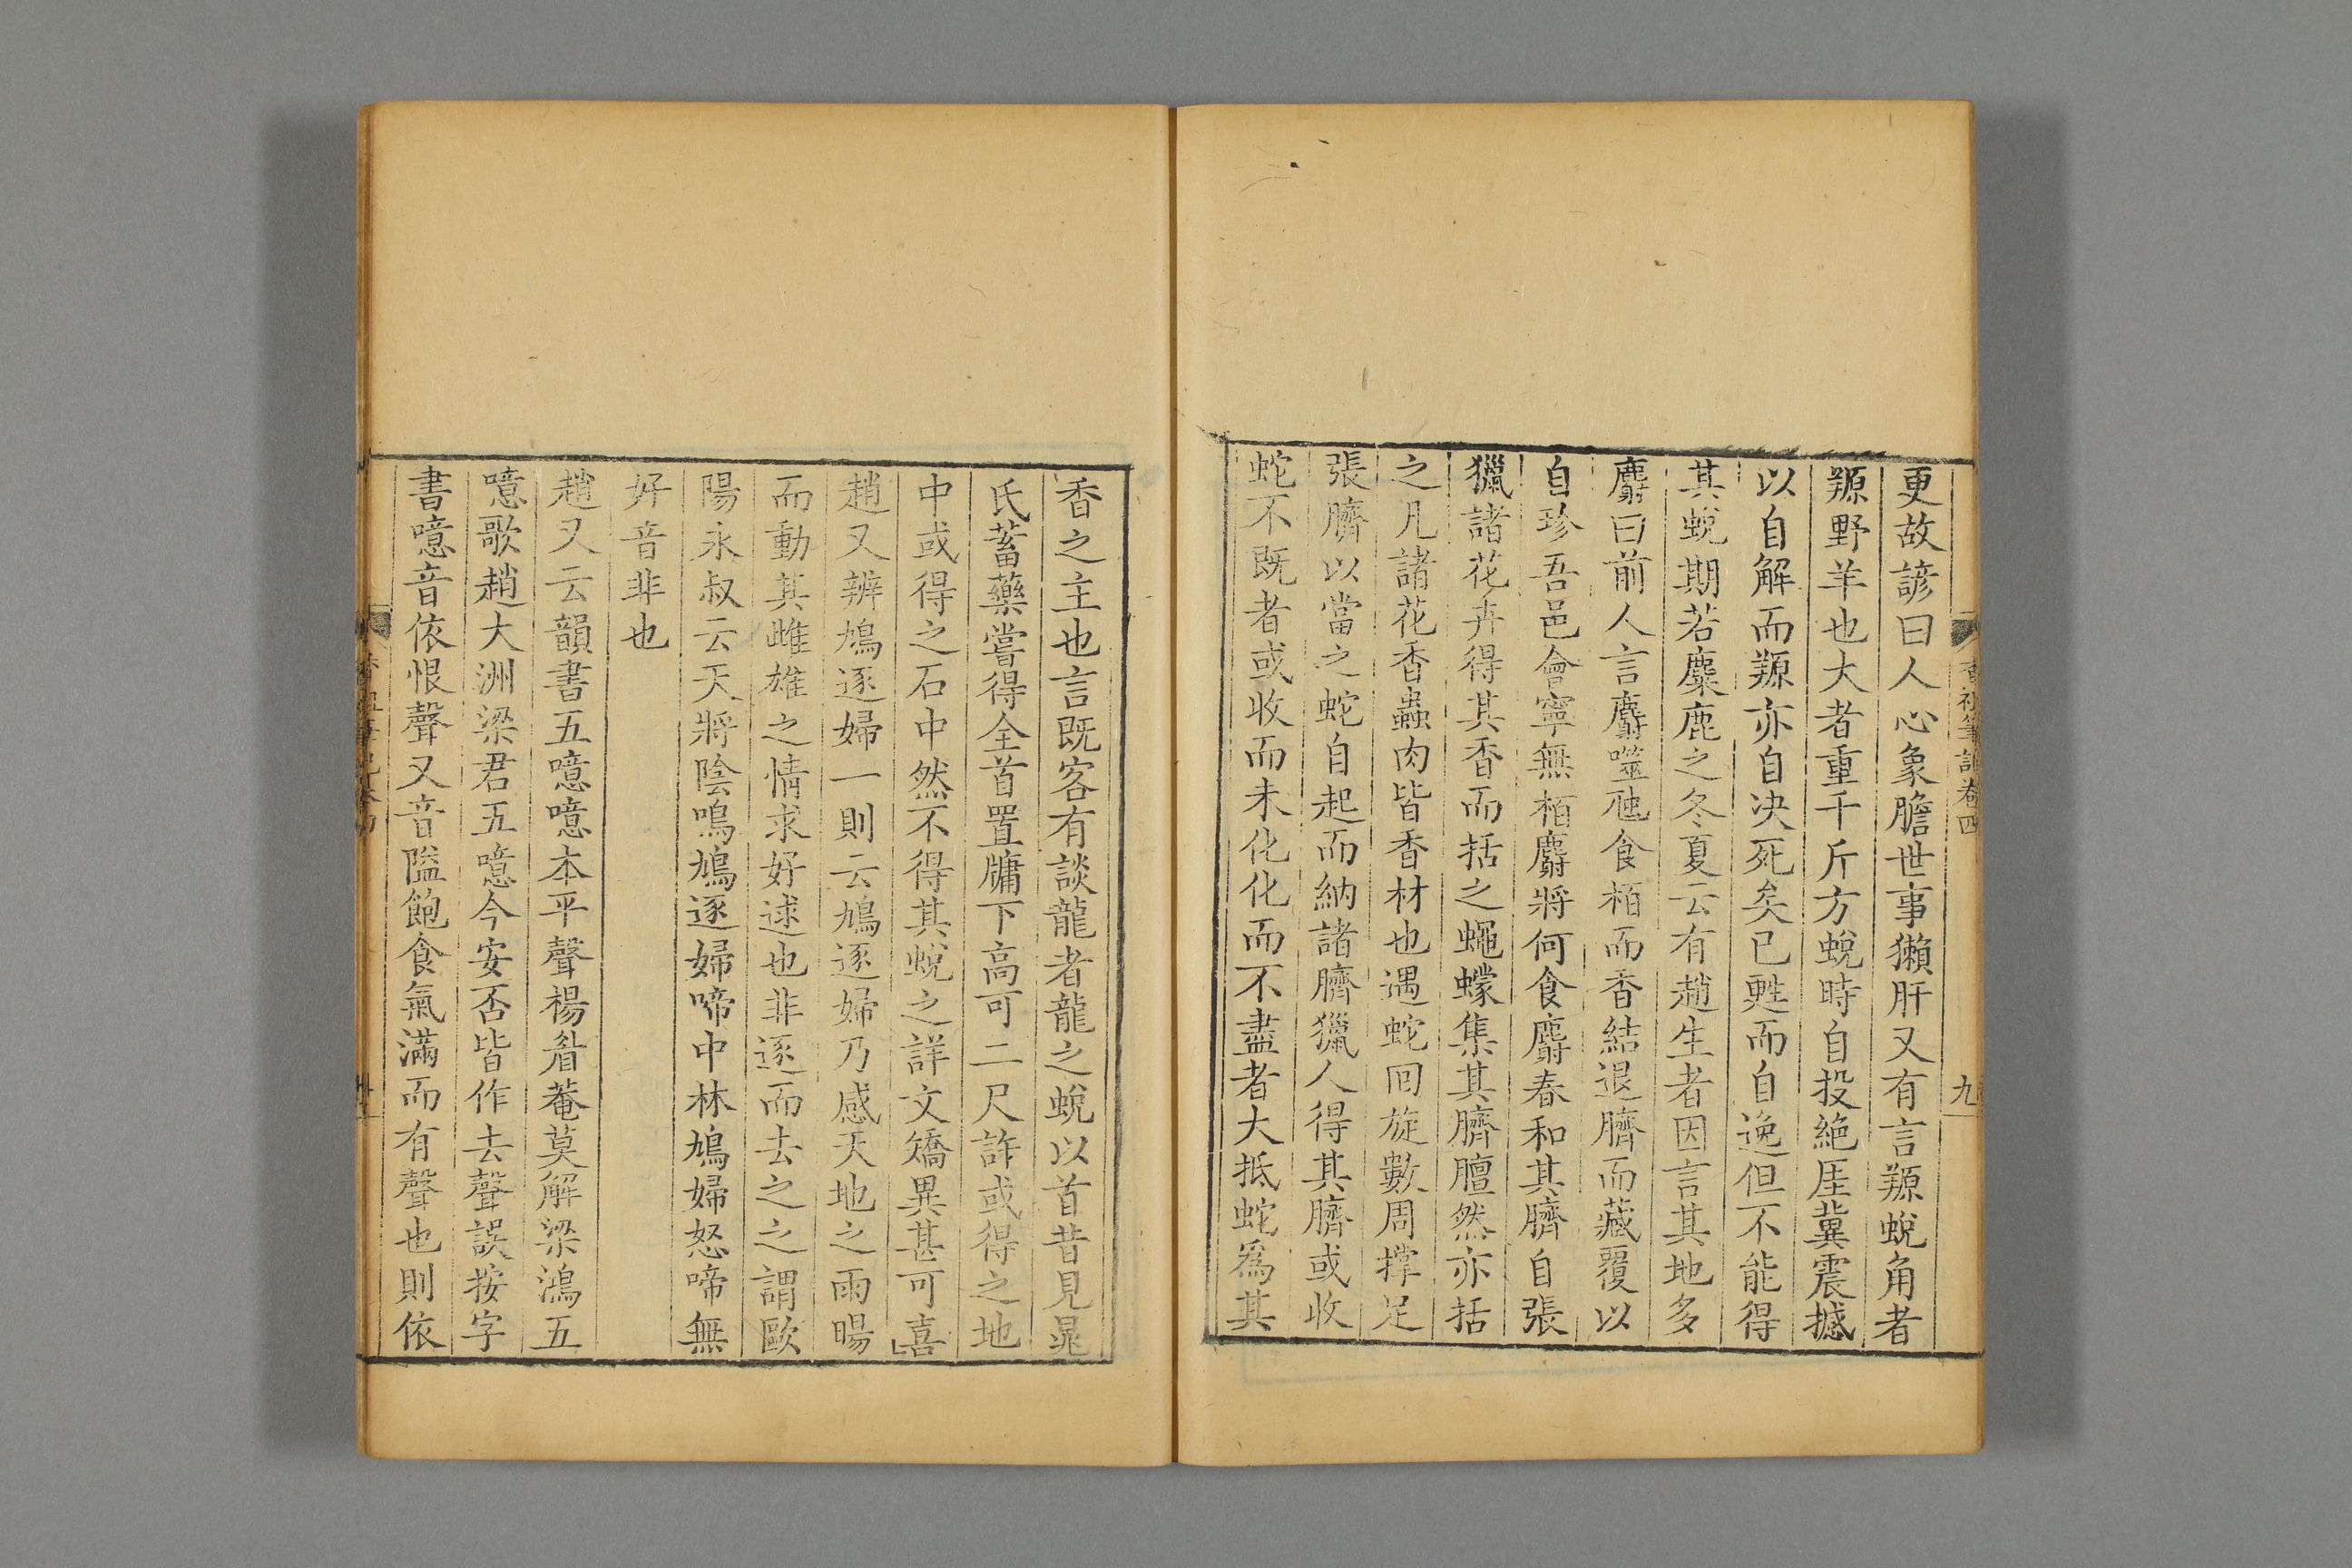 香祖筆記卷四
九
更故諺曰人心象膽世事獺肝又有言羱蛻角者
羱野羊也大者重千斤方蛻時自投絶厓冀震撼
以自解而羱亦自决死矣已甦而自逸但不能得
其蛻期若麋鹿之冬夏云有趙生者因言其地多
麝曰前人言麝噬虺食栢而香結退臍而藏覆以
自珍吾邑會寧無栢麝將何食麝春和其臍自張
獵諸花卉得其香而括之蠅蠓集其臍膻然亦括
之凡諸花香蟲肉皆香材也遇蛇囘旋數周撑足
張臍以當之蛇自起而納諸臍獵人得其臍或收
蛇不既者或收而未化化而不盡者大抵蛇爲其
香之主也言既客有談龍者龍之蛻以首昔見晁
氏蓄藥嘗得全首置牗下高可二尺許或得之地
中或得之石中然不得其蛻之詳文矯異甚可喜
趙又辨鳩逐婦一則云鳩逐婦乃感天地之雨暘
而動其雌雄之情求好逑也非逐而去之之謂歐
陽永叔云天將陰鳴鳩逐婦啼中林鳩婦怒啼無
好音非也
趙又云韻書五噫噫本平聲楊眉菴莫解梁鴻五
噫歌趙大洲梁君五噫今安否皆作去聲誤按字
書噫音依恨聲又音隘飽食氣滿而有聲也則依